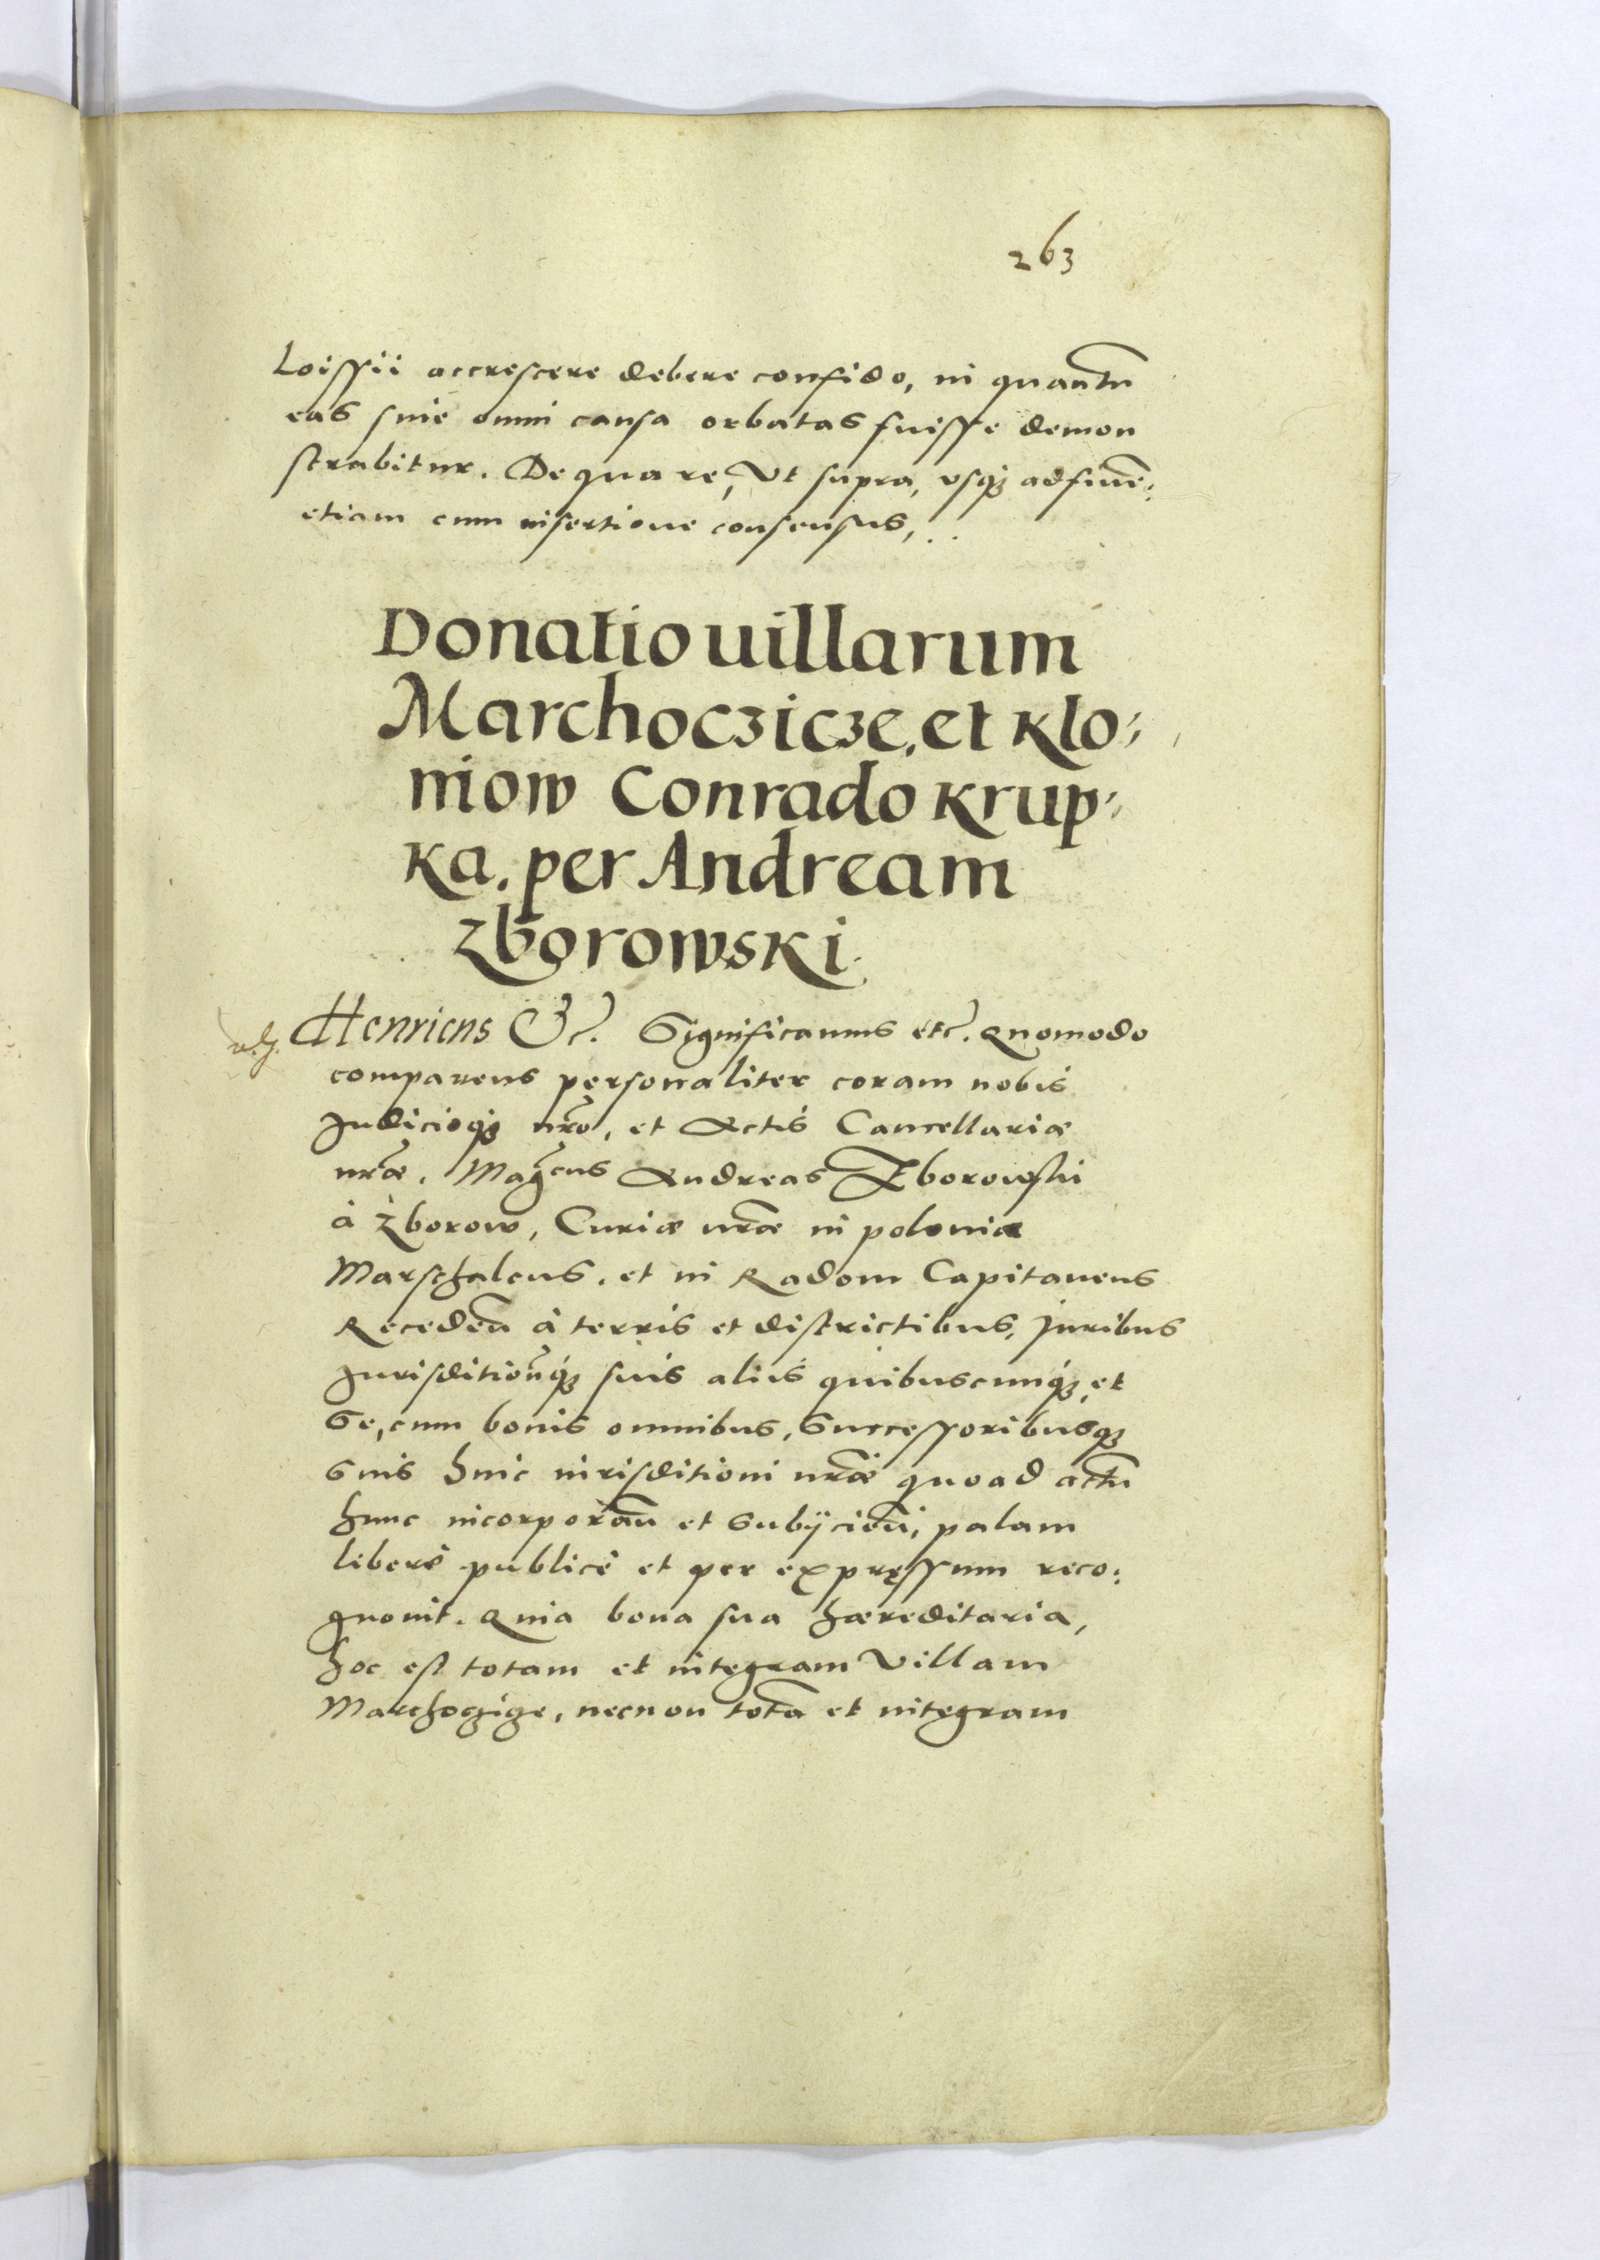 263
Loissii accrescere debere confido, in quantũ
eas sine omni causa orbatas fuisse demon
strabitur. De qua re, Vt supra, vsq₃ ad finẽ:
etiam cum insertione consensus,..
Donatio uillarum
Marchoczicze, et Klo⸗
niow Conrado Krup⸗
ka. per Andream
Zborowski.
Henricus &c. Significamus etc. Quomodo
comparens personaliter coram nobis
Judicioq₃ nr̃o, et Actis Cancellariæ
nr̃æ. Mag̃cus Andreas Zborowski
à Zborow, Curiæ nr̃æ in polonia
Marschalcus, et in Radom Capitaneus
Recedeñ à terris et districtibus, Juribus
Jurisditioñq₃ suis aliis quibuscunq₃, et
Se, cum bonis omnibus, Successoribusq₃
suis huic iurisditioni nr̃æ quoad actũ
hunc incorporañ et Subÿcieñ, palam
liberè publicè et per expręssum reco:
gnouit. Quia bona sua hæreditaria,
hoc est totam et integram Villam
Marchoczicze, necnon totã et integram